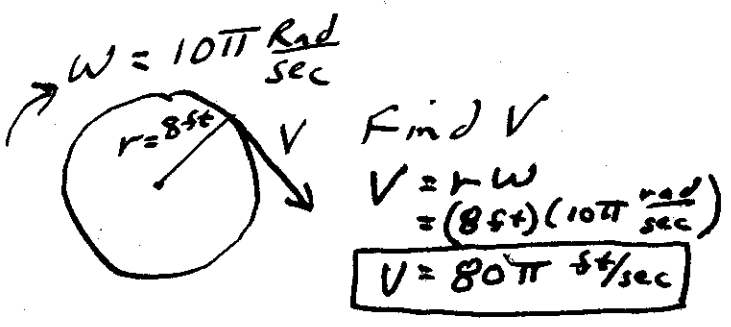 W = 10π Rad/sec
r = 8ft
V
Find V
V = r W
= (8ft)(10π rad/sec)
V = 80π ft/sec